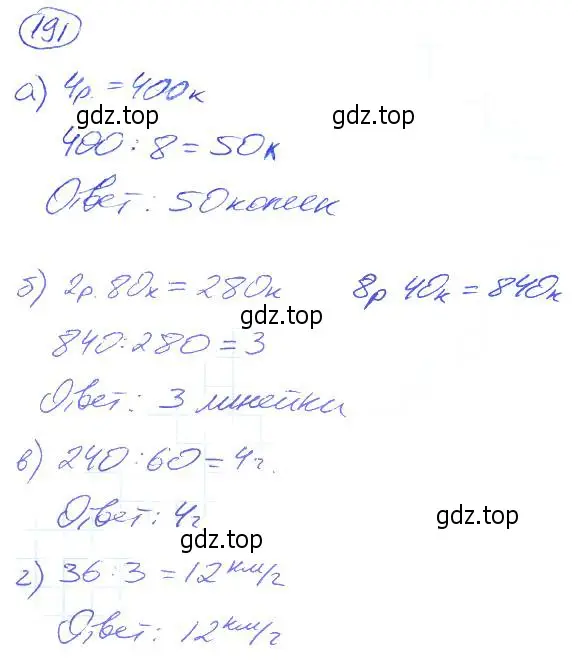 191
а) 4р. = 400к
gdz.top gdz.top
400 : 8 = 50к
Ответ: 50 копеек
б) 2р. 80к = 280к 8р 40к = 840к
gdz.top
840 : 280 = 3
Ответ: 3 линейки
в) 240 : 60 = 4г.
Ответ: 4г
gdz.top
gdz.top
г) 36 : 3 = 12 км/г
Ответ: 12 км/г